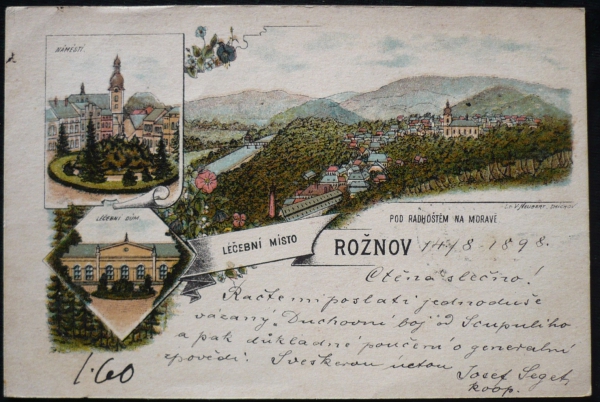 NÁMĚSTÍ
LÉČEBNÍ DŮM.
LÉČEBNÍ MÍSTO
POD RADHOŠTĚM NA MORAVĚ
ROŽNOV 14/8 - 1898.
Ctěná slečno!
Račte mi poslati jednoduše
vázaný „Duchovní boj" od Scupuliho
a pak důkladné poučení o generalní
zpovědi. Sveškerou úctou
Josef
koop.
1·60